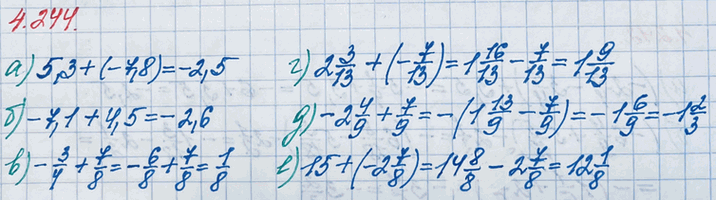 4.244.
а) 5,3 + (-7,8) = -2,5
б) -7,1 + 4,5 = -2,6
в) -3/4 + 7/8 = -6/8 + 7/8 = 1/8
г) 2 3/13 + (-7/13) = 1 16/13 - 7/13 = 1 9/13
д) -2 4/9 + 7/9 = -(1 13/9 - 7/9) = -1 6/9 = -1 2/3
е) 15 + (-2 7/8) = 14 8/8 - 2 7/8 = 12 1/8